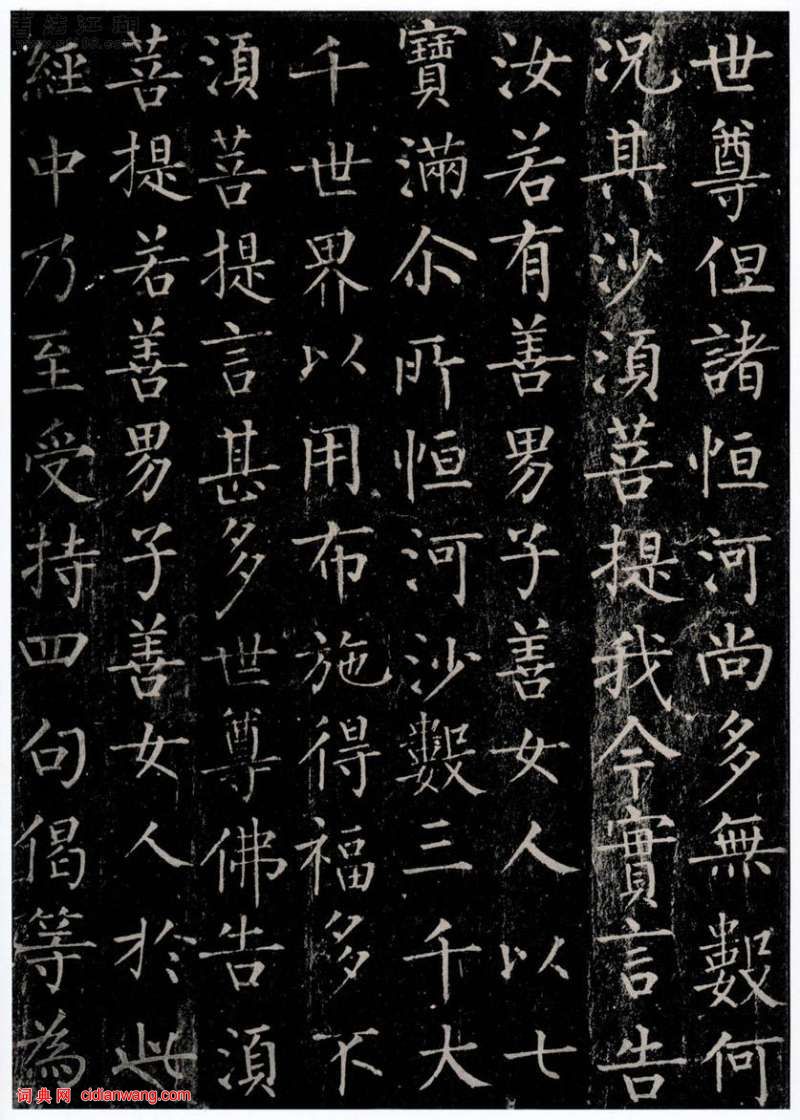 世尊但諸恒河尚多無數何
況其沙須菩提我今實言告
汝若有善男子善女人以七
寶滿尒所恒河沙數三千大
千世界以用布施得福多不
須菩提言甚多世尊佛告須
菩提若善男子善女人於此
經中乃至受持四句偈等為
词典网 cidianwang.com